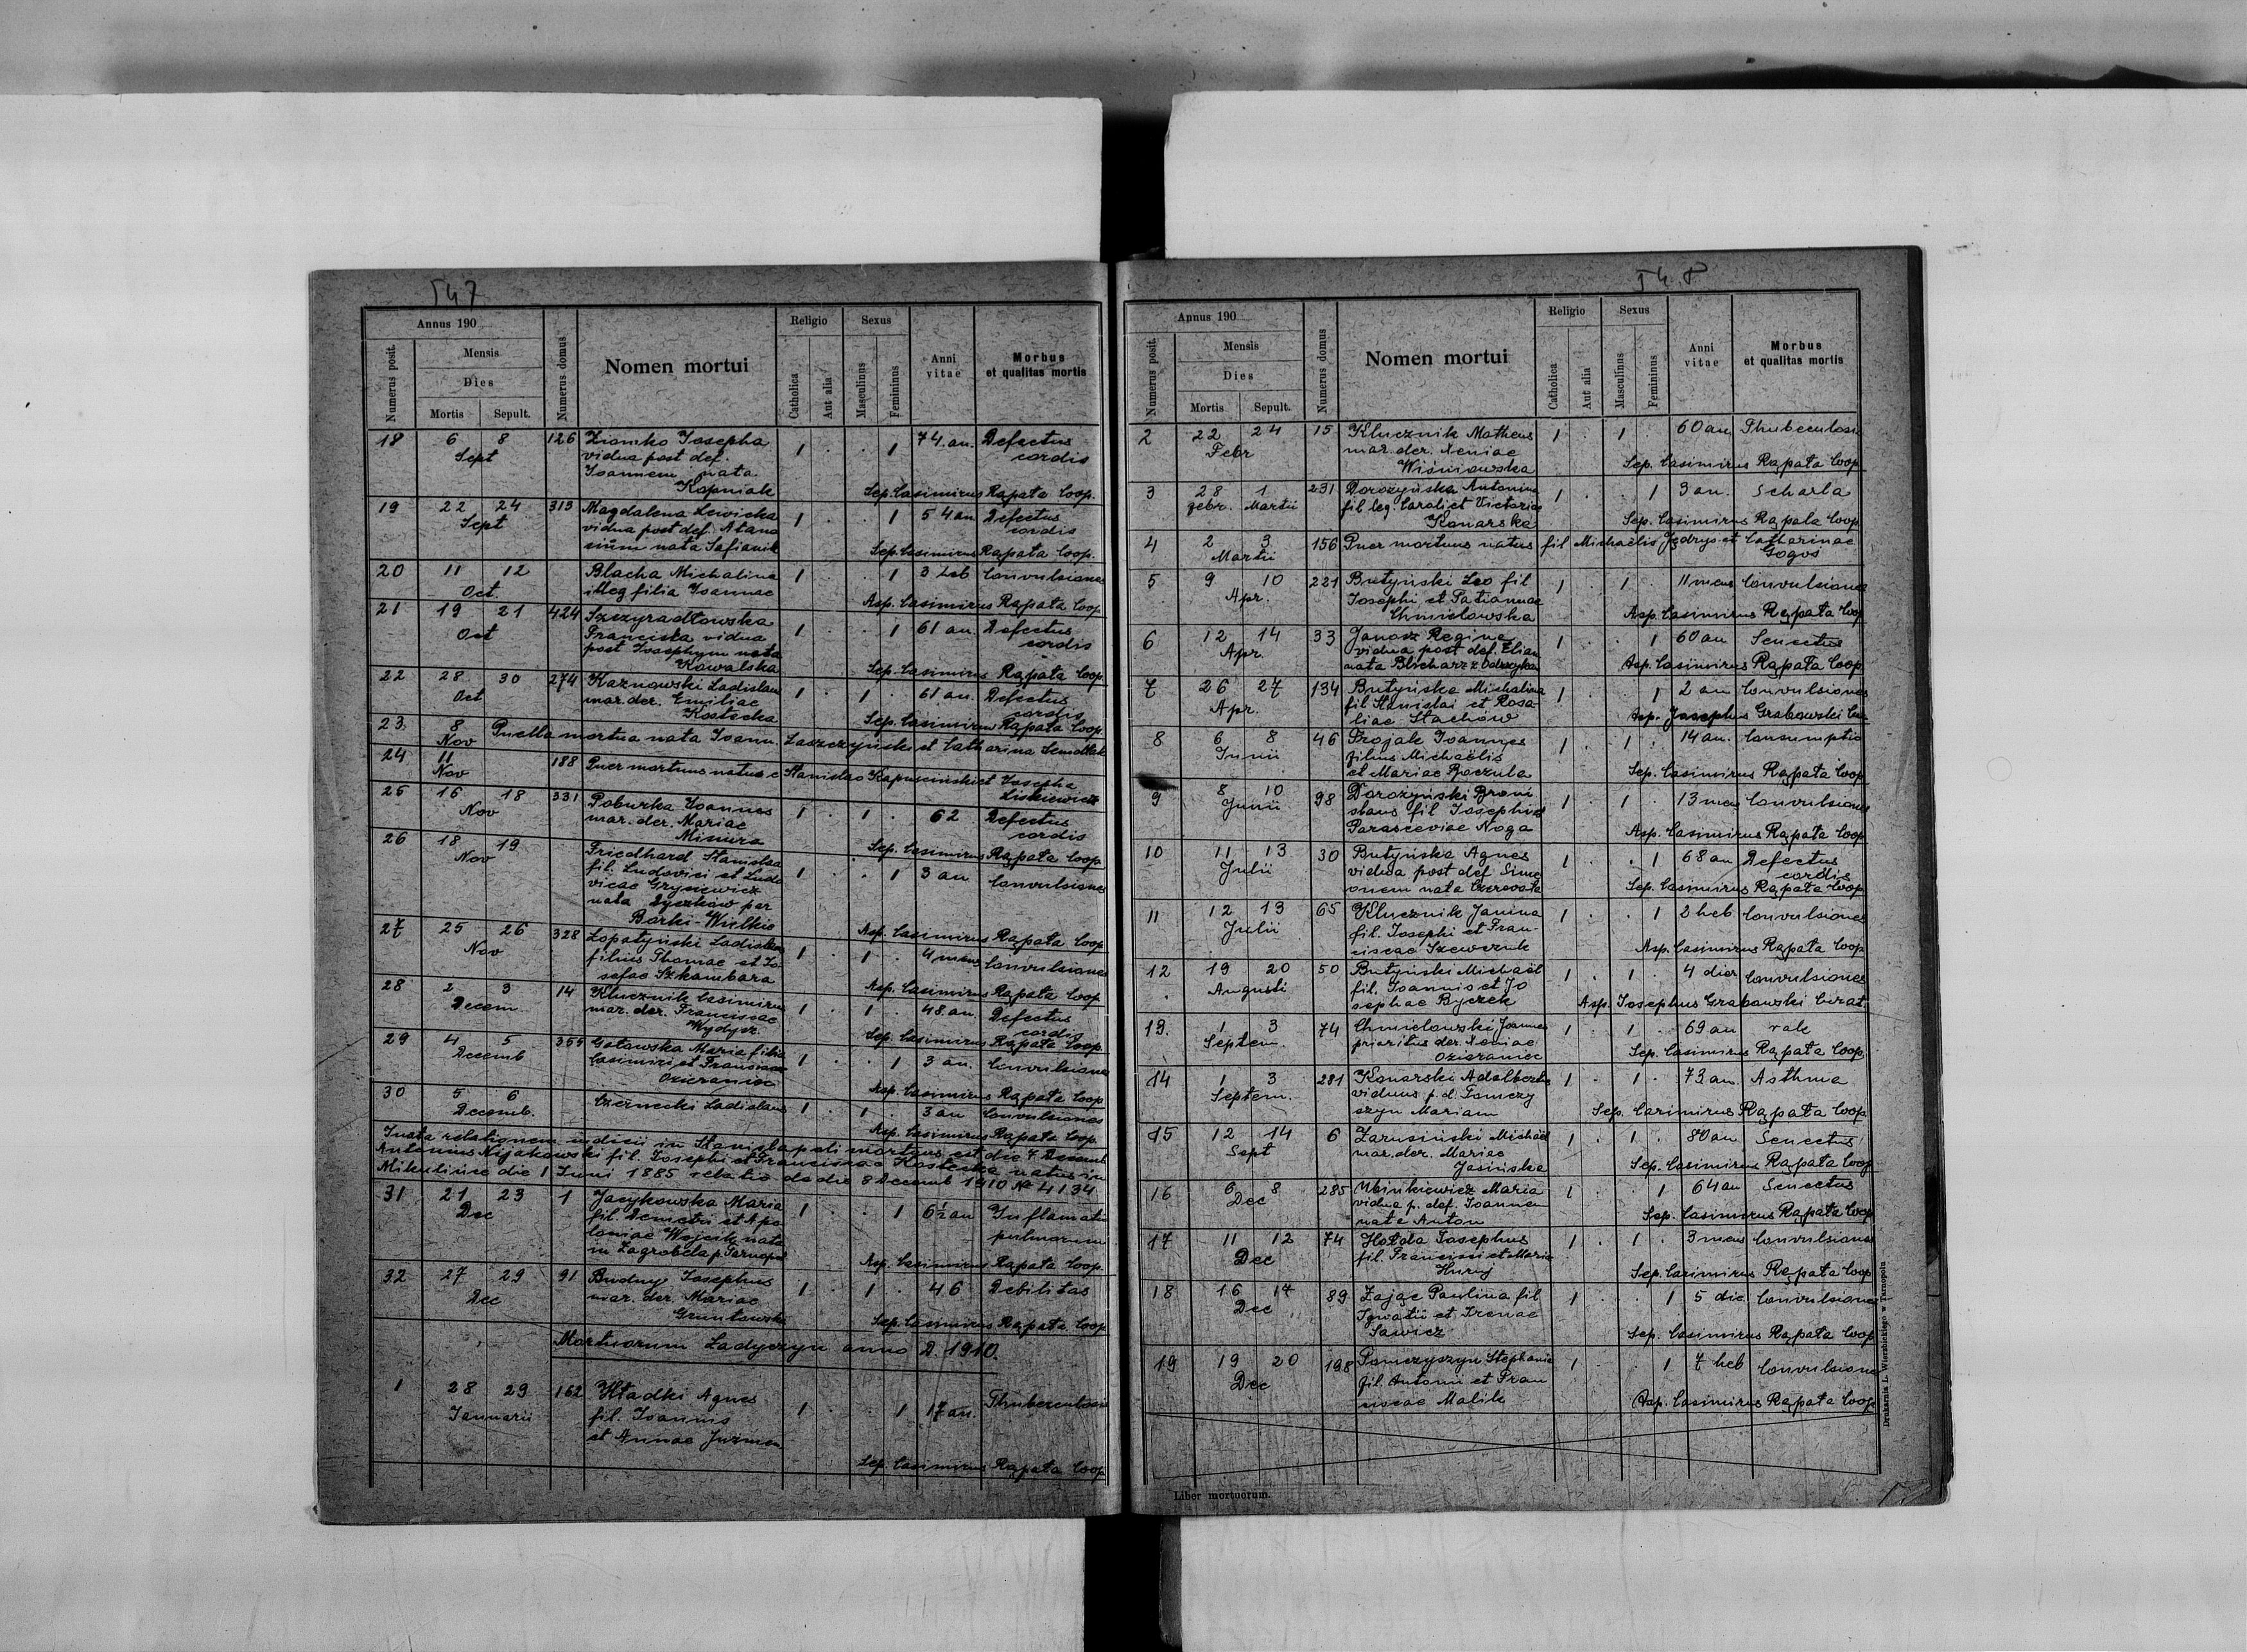 547
Annus 190
Numerus posit.
Mensis
Dies
Mortis Sepult.
Numerus domus
Nomen mortui
Religio
Catholica
Aut alia
Sexus
Masculinus
Femininus
Anni vitae
Morbus
et qualitas mortis
18 6 8 126 Ziomko Josepha 1 . . 1 74. an. Defectus
Sept vidua post def. cordis
Joannem nata
Kopniak Sep. Casimirus Rąpała Coop.
19 22 24 313 Magdalena Lewicka 1 . . 1 54 an Defectus
Sept vidua post def. Atana cordis
sium nata Safianik Sep. Casimirus Rąpała Coop.
20 11 12 Blacha Michalina 1 . . 1 3 heb Convulsiones
Oct. illeg filia Joannae Asp. Casimirus Rąpała Coop
21 19 21 424 Szczyradłowska 1 . . 1 61 an. Defectus
Oct Francisca vidua cordis
post Josephum nata
Kowalska Sep. Casimirus Rąpała Coop
22 28 30 274 Kaznowski Ladislaus 1 . 1 . 61 an. Defectus
Oct mar. der. Emiliae cordis
Kostecka Sep. Casimirus Rąpała Coop.
23. 8 Puella mortua nata Joann. Laszczyński et Catharina
Nov
24 11 188 Puer mortuus natus e Stanislao Kapuscinski et Josepha
Nov Liskiewicz
25 16 18 331 Poburka Joannes 1 . 1 . 62 Defectus
Nov mar. der. Mariae cordis
Misiura Sep. Casimirus Rąpała Coop
26 18 19 Friedhard Stanislaa 1 . . 1 3 an Convulsiones
Nov fil. Ludovici et Ludo
vicae Grysiewicz
nata Dyczków per
Borki-Wielkie Asp. Casimirus Rąpała Coop
27 25 26 328 Łopatyński Ladislaus 1 . 1 . 4 mens Convulsiones
Nov filius Thomae et Jo
sefae Szkambara Asp. Casimirus Rąpała Coop
28 2 3 14 Klucznik Casimirus 1 . 1 . 48. an. Defectus
Decem mar. der. Franciscae cordis
Wydysz Sep. Casimirus Rąpała Coop.
29 4 5 355 Gołowska Maria filia 1 . . 1 3 an. Convulsiones
Decemb Casimiri et Franciscae
Ozieraniec Asp. Casimirus Rąpała Coop
30 5 6 Czernecki Ladislaus 1 . 1 . 3 an Convulsiones
Decemb. Asp. Casimirus Rąpała Coop.
Juxta relationem iudicii in Stanislapoli mortuus est die 7. Decemb
Antonius Kijakowski fil. Josephi et Franciscae Kostecka natus in
Mikulińce die 1 Juni 1885 relatio do die 8 Decemb 1910 № 4134
31 21 23 1 Jacykowska Maria 1 . . 1 6½ an Inflamatio
Dec fil. Demetrii et Apo pulmonum
loniae Wojcik nata
in Zagrobela p. Tarnopol Asp. Casimirus Rąpała Coop.
32 27 29 91 Budny Josephus 1 . 1 . 46 Debilitas
Dec mar. der. Mariae
Gruntowska Sep. Casimirus Rąpała Coop
Mortuorum Ladyczyn anno D. 1910.
1 28 29 162 Hładki Agnes 1 . . 1 17 an. Thuberculosis
Januarii fil. Joannis
et Annae Juzmen
Sep. Casimirus Rąpała Coop
548
Annus 190
Numerus posit.
Mensis
Dies
Mortis Sepult.
Numerus domus
Nomen mortui
Religio
Catholica
Aut alia
Sexus
Masculinus
Femininus
Anni vitae
Morbus
et qualitas mortis
2 22 24 15 Klucznik Matheus 1 . 1 . 60 an Thubeculosis
Febr mar. der. Xeniae
Wiśniowska Sep. Casimirus Rąpała Coop
3 28 1 231 Dorożyńska Antonina 1 . . 1 3 an. Scharla
Febr. Martii fil leg. Caroli et Victoriae
Konarska Sep. Casimirus Rąpała Coop
4 2 3 156 Puer mortuus natus fil Michaëlis Jędrys et Catharinae
Martii Gogoś
5 9 10 221 Butyński Leo fil 1 . 1 . 11 mens Convulsiones
Apr. Josephi et Tatiannae
Chmielowska Asp. Casimirus Rąpała Coop
6 12 14 33 Janosz Regina 1 . . 1 60 an Senectus
Apr. vidua post def. Eliam
nata Blicharz z Odrzykon Asp. Casimirus Rąpała Coop
7 26 27 134 Butyńska Michalina 1 . . 1 2 an Convulsiones
Apr. fil Stanislai et Rosa-
liae Stachów Asp. Josephus Grabowski
8 6 8 46 Trojak Joannes 1 . 1 . 14 an. Consumptio
Junii filius Michaëlis
et Mariae Raczula Sep. Casimirus Rąpała Coop
9 8 10 98 Dorożyński Broni 1 . 1 . 13 men Convulsiones
Junii slaus fil Josephi et
Parasceviae Noga Asp. Casimirus Rąpała Coop
10 11 13 30 Butyńska Agnes 1 . . 1 68 an Defectus
Julii vidua post def Sime cordis
onem nata Czerwata Sep. Casimirus Rąpała Coop
11 12 13 65 Klucznik Janina 1 . . 1 2 heb Convulsiones
Julii fil. Josephi et Fran-
ciscae Szewczuk Asp. Casimirus Rąpała Coop
12 19 20 50 Butyński Michaël 1 . 1 . 4 dier Convulsiones
Augusti fil. Joannis et Jo
sephae Ryczek Asp. Josephus Grabowski Curat.
13. 1 3 74 Chmielowski Joannes 1 . 1 . 69 an rak
Septem. prioribus der. Xeniae
Ozieraniec Sep. Casimirus Rąpała Coop.
14 1 3 281 Konarski Adalbertus 1 . 1 . 73 an. Asthma
Septem. viduus p. d. Tomczy
szyn Mariam Sep. Casimirus Rąpała Coop.
15 12 14 6 Zarusiński Michaël 1 . 1 . 80 an Senectus
Sept mar. der. Mariae
Jasińska Sep. Casimirus Rąpała Coop
16 6 8 285 Maria 1 . . 1 64 an Senectus
Dec vidua p. def. Joannem
nata Anton Sep. Casimirus Rąpała Coop
17 11 12 74 Hołda Josephus 1 . 1 . 3 men Convulsiones
Dec fil. Francisci et Maria
Huruj Sep. Casimirus Rąpała Coop
18 16 17 89 Zając Paulina fil 1 . . 1 5 die Convulsiones
Dec Ignatii et Irenae
Sawicz Sep. Casimirus Rąpała Coop
19 19 20 198 Tomczyszyn Stephania 1 . . 1 7 heb Convulsiones
Dec fil. Antonii et Fran
ciscae Malik Asp. Casimirus Rąpała Coop
Liber mortuorum.
Drukarnia L. Wierzbickiego w Tarnopolu